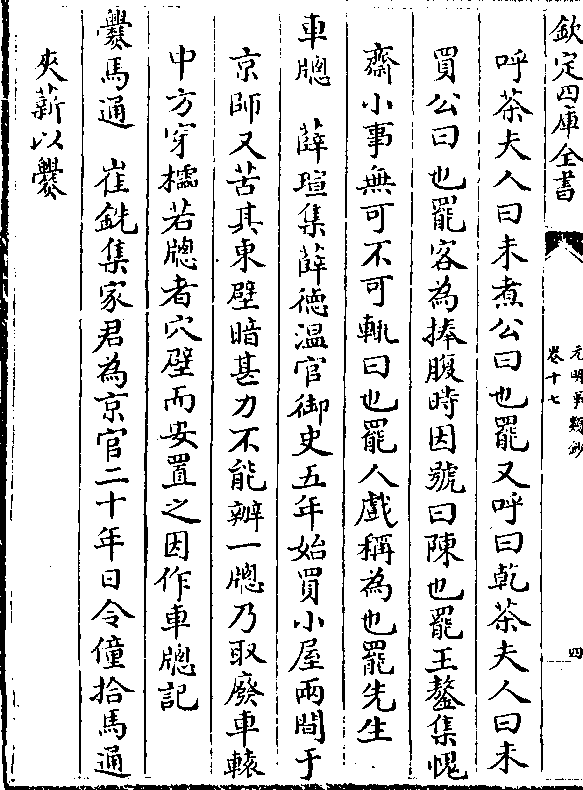 欽定四庫全書
元明事類鈔
卷十七
四
呼茶夫人曰未煮公曰也罷又呼曰乾茶夫人曰未
買公曰也罷客為捧腹時因號曰陳也罷王鏊集愧
齋小事無可不可輒曰也罷人戲稱為也罷先生
車牕 薛瑄集薛徳温官御史五年始買小屋兩間于
京師又苦其東壁暗甚力不能辦一牕乃取廢車轅
中方穿櫺若牕者穴壁而安置之因作車牕記
爨馬通 崔銑集家君為京官二十年日令僮拾馬通
夾薪以爨